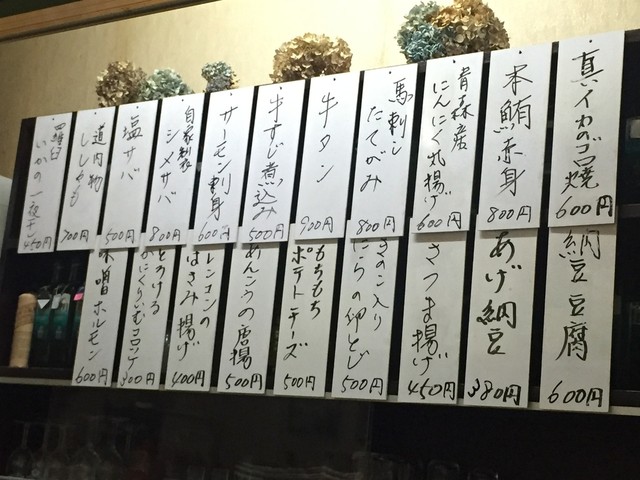 真イカのゴロ焼
600円
本鮪赤身
800円
青森産
にんにく丸揚げ
600円
馬刺し
たてがみ
800円
牛タン
900円
牛すじ煮込み
500円
サーモン刺身
600円
自家製
シメサバ
800円
塩サバ
500円
道内物
ししゃも
700円
羅臼
いかの一夜干
450円
納豆豆腐
600円
あげ納豆
380円
さつま揚げ
450円
きのこ入り
にらの卵とじ
500円
もちもち
ポテトチーズ
500円
あんこうの唐揚
500円
レンコンの
はさみ揚げ
400円
とろける
300円
味噌ホルモン
600円